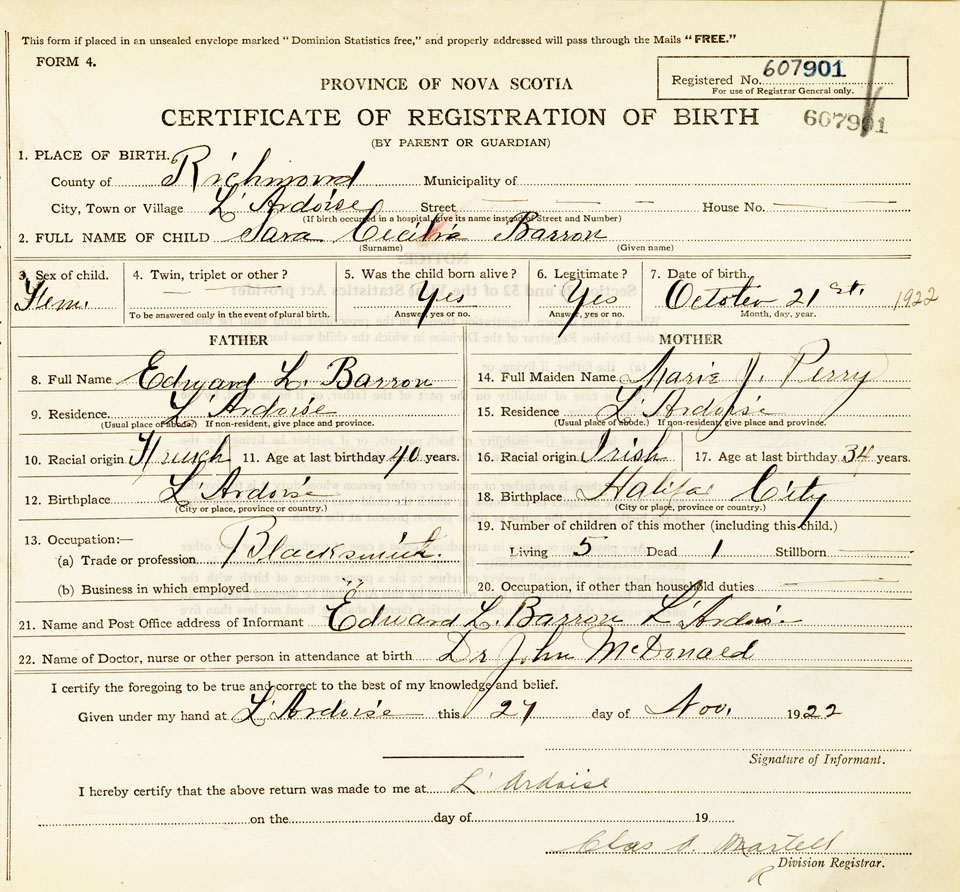 This form if placed in an unsealed envelope marked "Dominion Statistics free," and properly addressed will pass through the Mails "FREE."
FORM 4.
PROVINCE OF NOVA SCOTIA
Registered No. 607901
For use of Registrar General only.
CERTIFICATE OF REGISTRATION OF BIRTH
607901
(BY PARENT OR GUARDIAN)
1. PLACE OF BIRTH.
County of Richmond Municipality of
City, Town or Village L'Ardoise Street House No.
(If birth occurred in a hospital, give its name instead of Street and Number)
2. FULL NAME OF CHILD Sara Cecilia Barron
(Surname) (Given name)
3. Sex of child. 4. Twin, triplet or other? 5. Was the child born alive? 6. Legitimate? 7. Date of birth.
Fem. Yes Yes October 21st. 1922
To be answered only in the event of plural birth. Answer, yes or no. Answer, yes or no. Month, day, year.
FATHER MOTHER
8. Full Name Edward L. Barron 14. Full Maiden Name Marie J. Perry
9. Residence L'Ardoise 15. Residence L'Ardoise
(Usual place of abode.) If non-resident, give place and province. (Usual place of abode.) If non-resident, give place and province.
10. Racial origin French 11. Age at last birthday 40 years. 16. Racial origin Irish 17. Age at last birthday 34 years.
12. Birthplace L'Ardoise 18. Birthplace Halifax City
(City or place, province or country.) (City or place, province or country.)
13. Occupation:— 19. Number of children of this mother (including this child.)
(a) Trade or profession Blacksmith. Living 5 Dead 1 Stillborn
(b) Business in which employed 20. Occupation, if other than household duties
21. Name and Post Office address of Informant Edward L. Barron L'Ardoise
22. Name of Doctor, nurse or other person in attendance at birth Dr John McDonald
I certify the foregoing to be true and correct to the best of my knowledge and belief.
Given under my hand at L'Ardoise this 27 day of Nov. 1922
Signature of Informant.
I hereby certify that the above return was made to me at L'Ardoise
on the day of 19
Martell
Division Registrar.